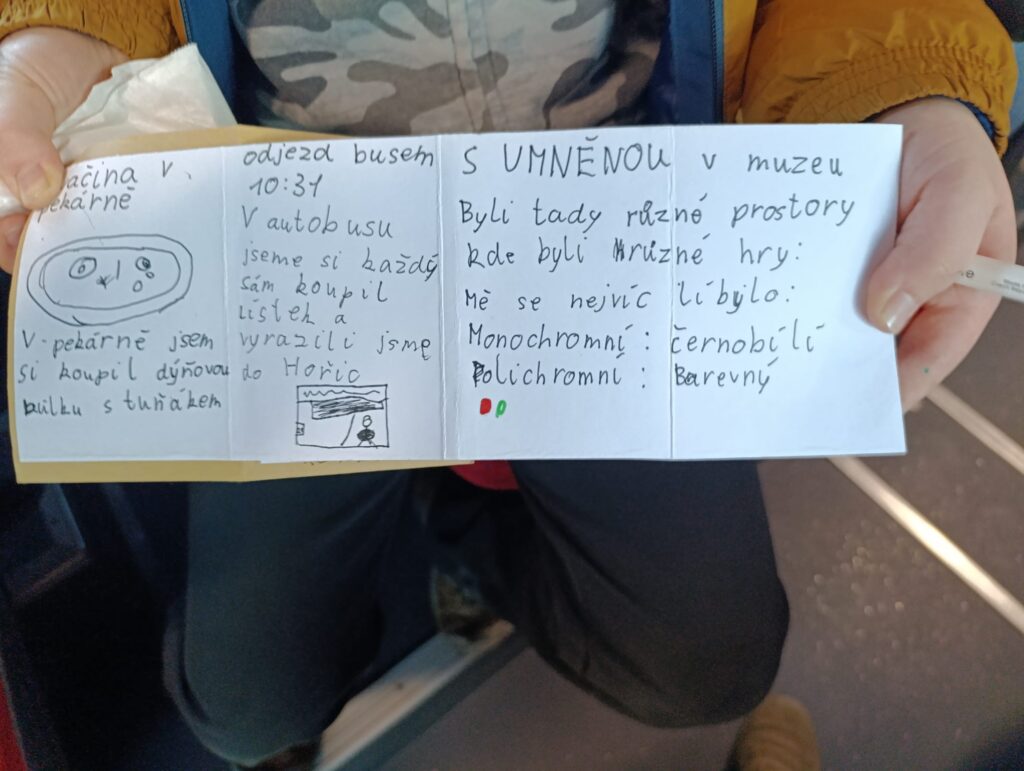 ačina v
pekárně
V pekárně jsem
si koupil dýňovou
bulku s tuňákem
odjezd busem
10:31
V autobusu
jseme si každý
sám koupil
lístek a
vyrazili jsme
do Hořic
S UMNĚNOU v muzeu
Byli tady různé prostory
kde byli různé hry:
Mě se nejvíc líbylo:
Monochromní: černobílí
Polichromní: Barevný